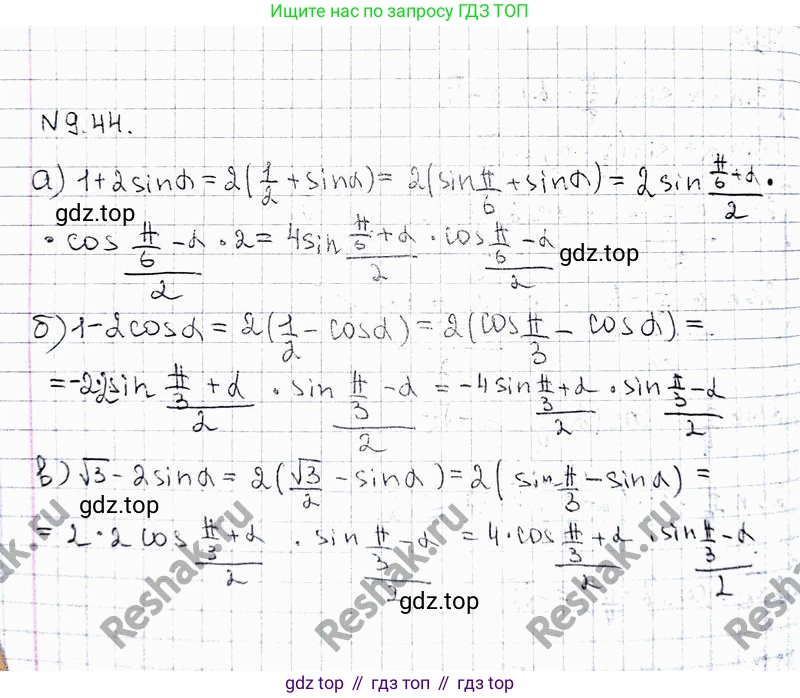 Ищите нас по запросу ГДЗ ТОП
N 9.44.
а) 1+2sinα = 2(1/2 + sinα) = 2(sin π/6 + sinα) = 2 sin (π/6 + α)/2 ·
gdz.top
· cos (π/6 − α)/2 · 2 = 4 sin (π/6 + α)/2 · cos (π/6 − α)/2
gdz.top
б) 1−2cosα = 2(1/2 − cosα) = 2(cos π/3 − cosα) =
= −2·2sin (π/3 + α)/2 · sin (π/3 − α)/2 = −4 sin (π/3 + α)/2 · sin (π/3 − α)/2
в) √3 − 2sinα = 2(√3/2 − sinα) = 2(sin π/3 − sinα) =
gdz.top
= 2·2 cos (π/3 + α)/2 · sin (π/3 − α)/2 = 4·cos (π/3 + α)/2 · sin (π/3 − α)/2
gdz.top
Reshak.ru
Reshak.ru
Reshak.ru
Reshak.ru
gdz top // гдз топ // gdz top